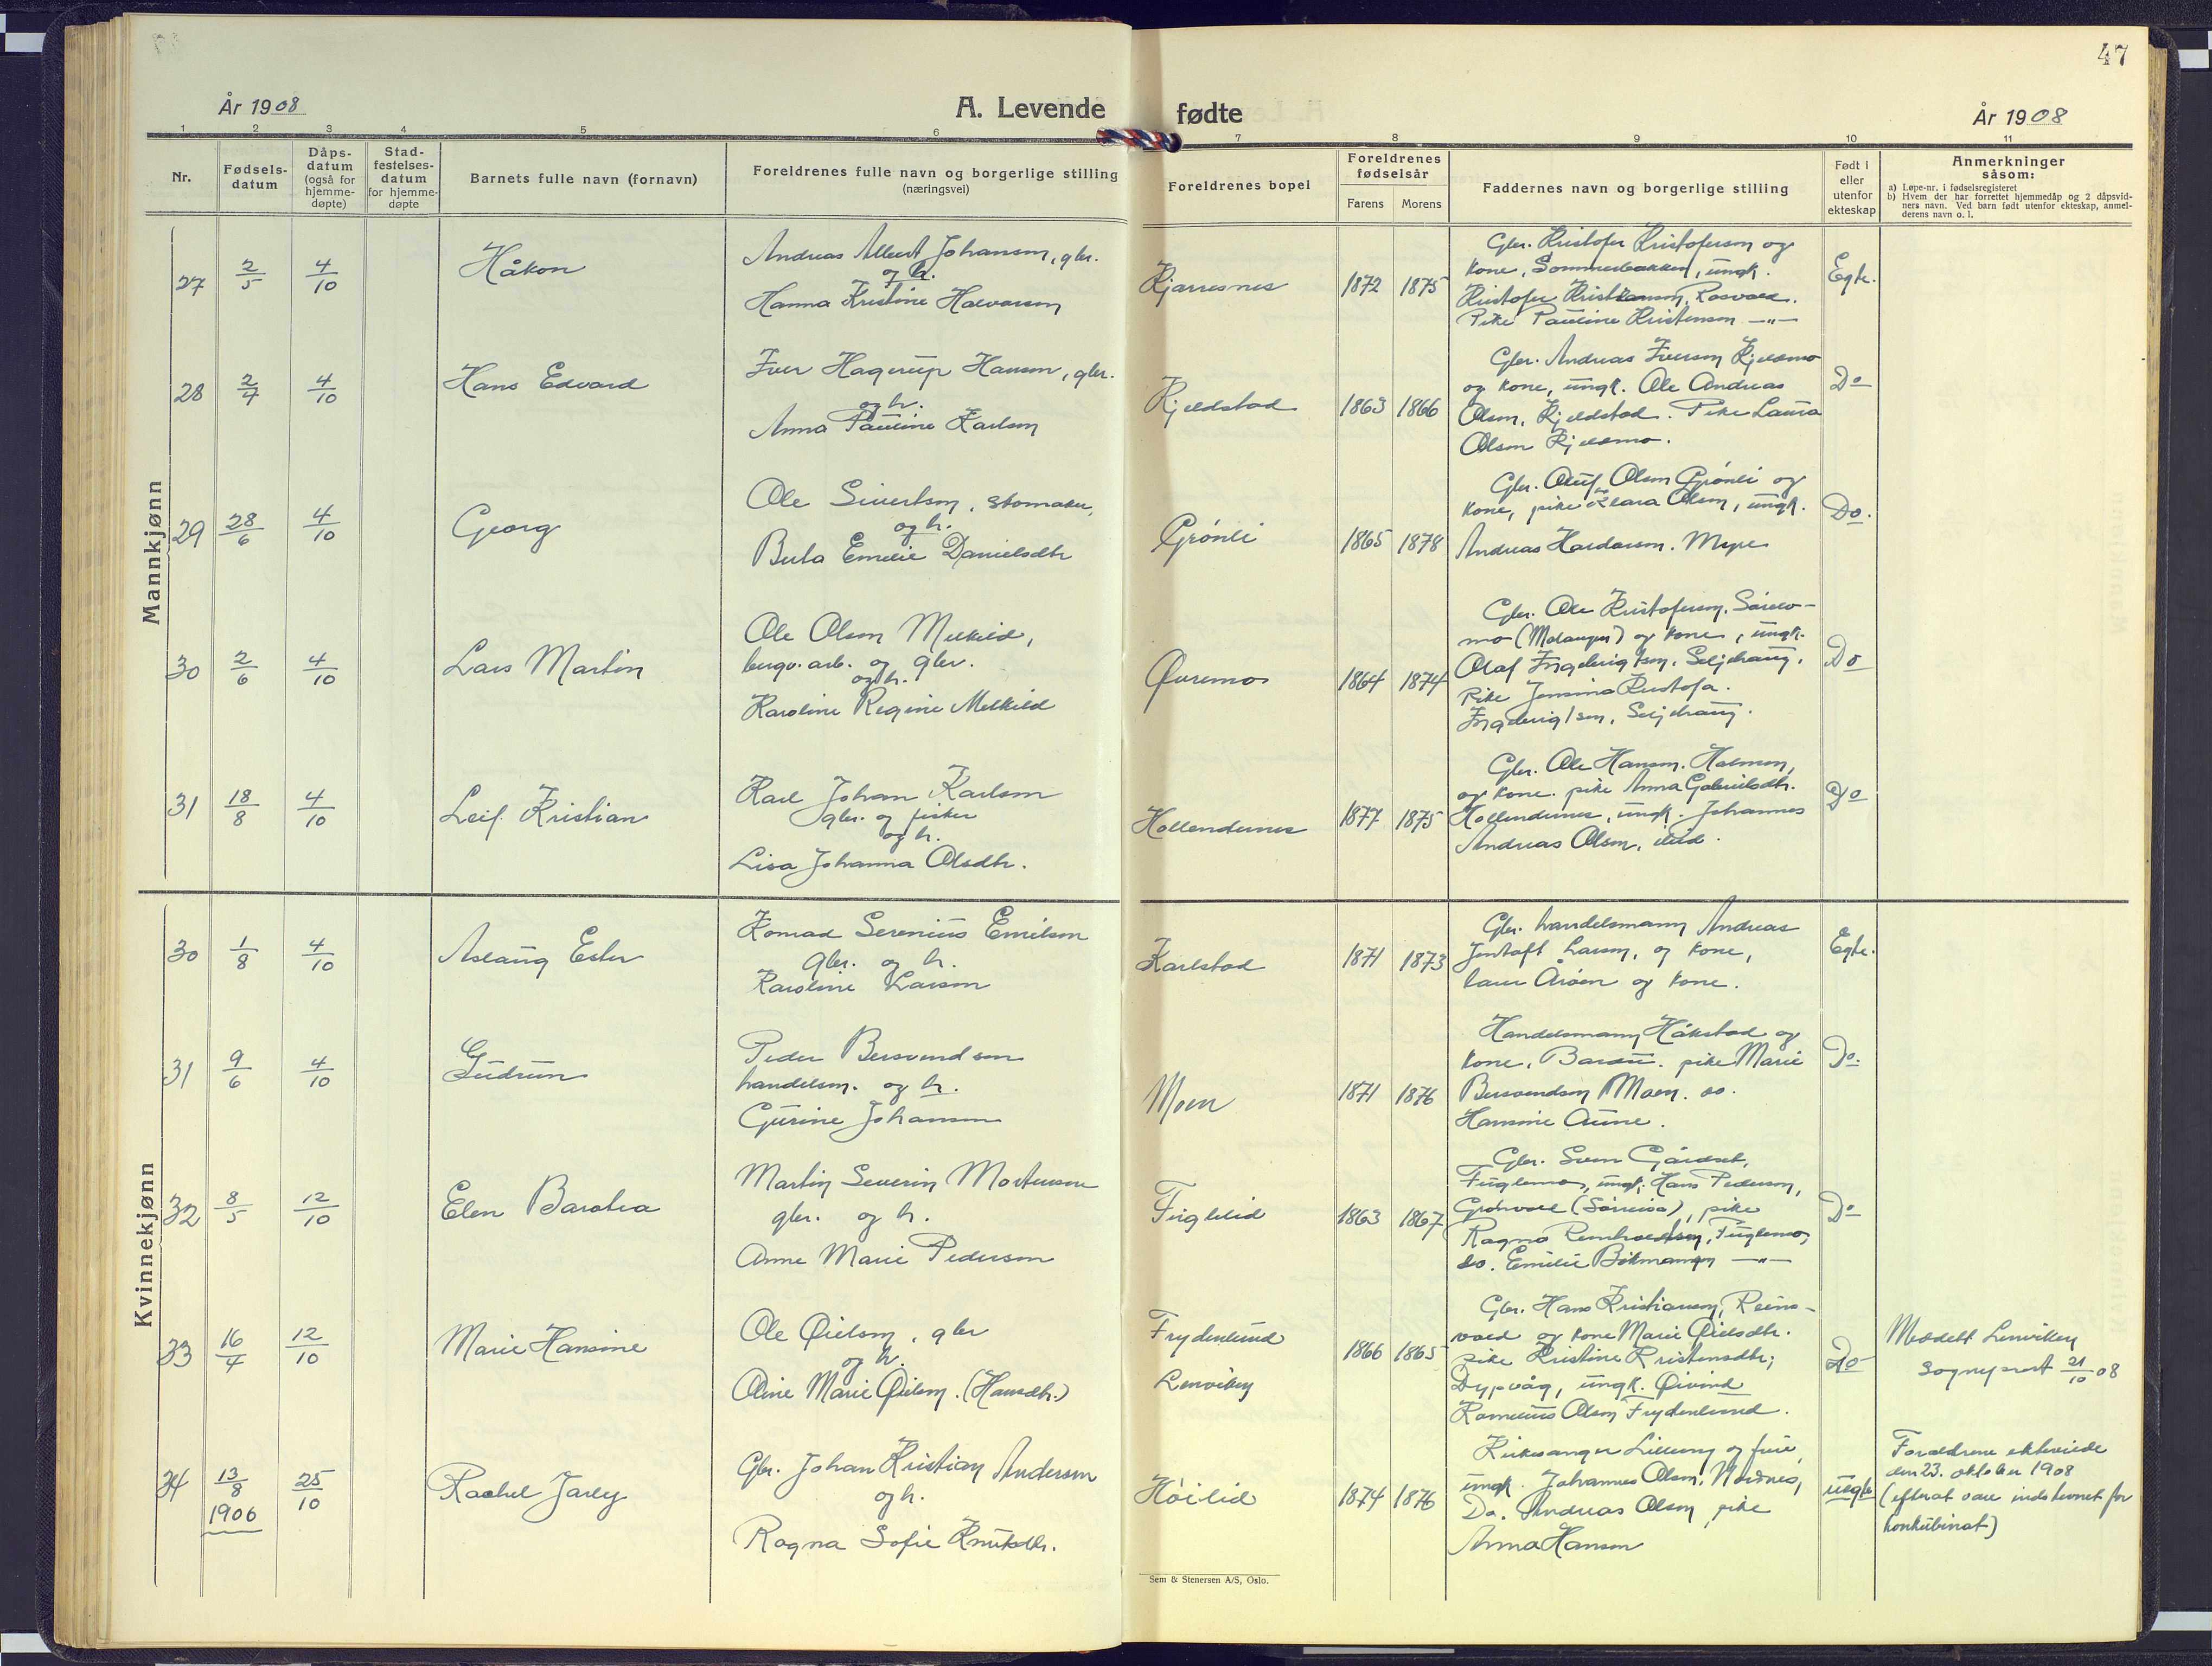 47
År 1908
A. Levende fødte
År 1908
1 2 3 4 5 6 7 8 9 10 11
Nr.
Fødsels-
datum
Dåps-
datum
(også for
hjemme-
døpte)
Stad-
festelses-
datum
for hjemme-
døpte
Barnets fulle navn (fornavn)
Foreldrenes fulle navn og borgerlige stilling
(næringsvei)
Foreldrenes bopel
Foreldrenes
fødselsår
Farens Morens
Faddernes navn og borgerlige stilling
Født i
eller
utenfor
ekteskap
Anmerkninger
såsom:
a) Løpe-nr. i fødselsregisteret
b) Hvem der har forrettet hjemmedåp og 2 dåpsvid-
ners navn. Ved barn født utenfor ekteskap, anmel-
derens navn o. l.
Mannkjønn
27 2/5 4/10 Håkon
Andreas Albert Johansen, gbr.
og h.
Hanna Kristine Halvorsen
Kjarresnes 1872 1875
Gbr. Kristofer Kristofersen og
kone, Sommerbakken, ungk.
Kristofer Kristiansen, Rosvold.
Pike Pauline Kristensen —"—
Egte.
28 2/7 4/10 Hans Edvard
Iver Hagerup Hansen, gbr.
og h.
Anna Pauline Karlsen
Kjeldstad 1863 1866
Gbr. Andreas Iversen Kjeldmo
og kone, ungk. Ole Andreas
Olsen, Kjeldstad. Pike Laura
Olsen Kjeldmo.
Do
29 28/6 4/10 Georg
Ole Sivertsen, skomaker,
og h.
Berta Emelie Danielsdtr
Grönli 1865 1878
Gbr. Oluf Olsen Grönli og
kone, pike Klara Olsen, ungk.
Andreas Haldorsen. Myre
Do.
30 2/6 4/10 Lars Martin
Ole Olsen Melkild,
bergv. arb. og gbr.
og h.
Karoline Regine Melkild
Øvremo 1864 1874
Gbr. Ole Kristofersen, Sörelv-
mo (Malangen) og kone, ungk.
Olaf Ingebrigtsen, Seljehaug,
Pike Jensina Kristofa
Ingebrigtsen, Seljehaug.
Do
31 18/8 4/10 Leif Kristian
Karl Johan Karlsen
gbr. og fisker
og h.
Lisa Johanna Olsdtr.
Hollendernes 1877 1875
Gbr. Ole Hansen. Holmen,
og kone. pike Anna Gabrielsdtr.
Hollendernes, ungk. Johannes
Andreas Olsen, ibid.
Do
Kvinnekjønn
30 1/8 4/10 Aslaug Ester
Konrad Serenius Emilsen
gbr. og h.
Karoline Larsen
Karlstad 1871 1873
Gbr. handelsmann Andreas
Jentoft Larsen, og kone,
lærer Aröen og kone.
Egte.
31 9/6 4/10 Gudrun
Peder Bersvendsen
handelsm. og h.
Gurine Johansen
Moen 1871 1876
Handelsmann Håkstad og
kone, Bardu. pike Marie
Bersvendsen Moen. do.
Hansine Aune.
Do.
32 8/5 12/10 Elen Barolea
Martin Severin Mortensen
gbr. og h.
Anne Marie Pedersen
Fuglelid 1863 1867
Gbr. Sven Gårdset,
Fuglemo, ungk. Hans Pedersen,
(Sörreisa), pike
Ragna Reinholdtsen, Fuglemo,
do. Emilie —"—
Do
33 16/4 12/10 Marie Hansine
Ole Øielsen, gbr
og h.
Oline Marie Øielsen. (Hansdtr.)
Frydenlund
Lenviken
1866 1865
Gbr. Hans Kristiansen, Reins-
vold og kone Marie Øielsdtr.
pike Kristine Kristensdtr;
Dypvåg, ungk. Øivind
Olsen Frydenlund.
Do
Meddelt Lenviken
sogneprest 21/10 08
34 13/8 1906 25/10 Rachel Jarley
Gbr. Johan Kristian Andersen
og h.
Ragna Sofie Knutsdtr.
Höilid 1874 1876
Kirkesanger Lilleeng og frue,
ungk. Johannes Olsen, Nordnes,
Do. Andreas Olsen, pike
Anna Hansen
uegte
Forældrene ekteviede
den 23. oktober 1908
(efterat være indstevnet for
konkubinat)
Sem & Stenersen A/S, Oslo.